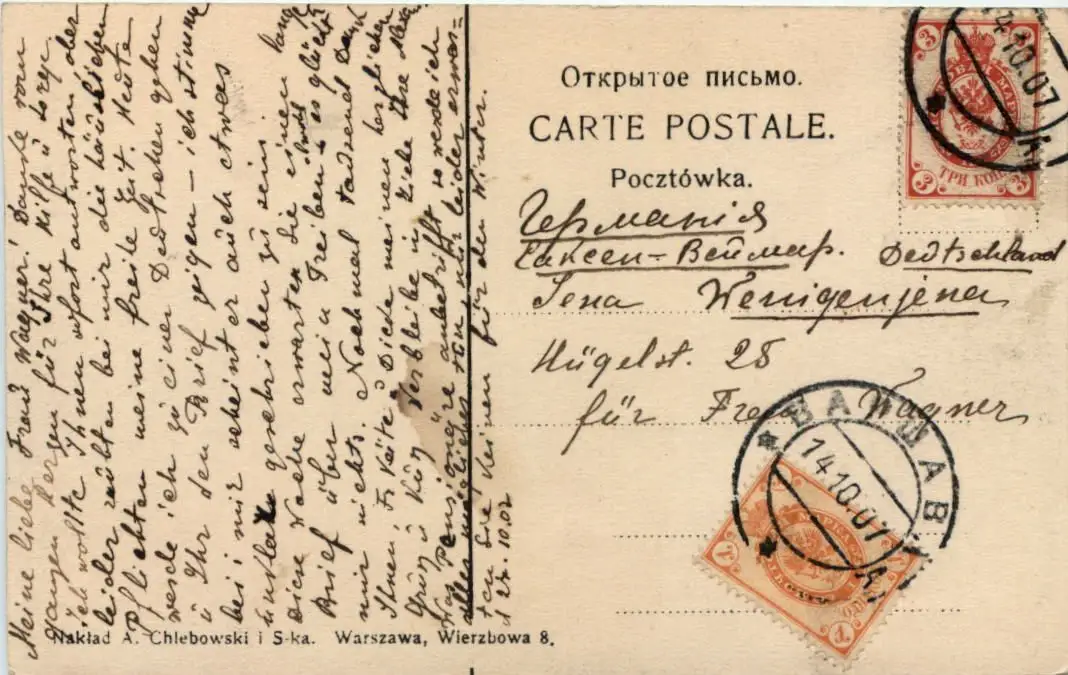 Meine liebe Frau Wagner! Danke vom
ganzen Herzen für Ihre Hilfe ü Sorge
ich wollte Ihnen sofort antworten aber
leider raubten bei mir die häuslichen
Pflichten meine freile Zeit. Heute
werde ich zu einer Deutschen gehen
ü Ihr den Brief zeigen – ich stimme
bei mir scheint er auch etwas
geschrieben zu sein
Diese Woche erwarten die einen lange
Brief über mein Treiben – es glückt
mir nichts. Nochmal tausend Dank
Ihnen, Fr. Käte ü Dicke meinen herzlichen
Grüß ü Küß Verbleibe in Liebe Ihre
Was Pensionäre anbetrifft so werde ich
alles mögliches tün, nür leider erwar-
ten Sie keinen für den Winter.
d 10.07
Nakład A. Chlebowski i S-ka. Warszawa, Wierzbowa 8.
Открытое письмо.
CARTE POSTALE.
Pocztówka.
Германія
Саксен-Веймар. Deutschland
Jena Wenigenjena
Hügelst. 25
für Frau Wagner
3 3
14.10.07
ТРИ КОП
3 3
ВАРШАВ
14.10.07
1 1